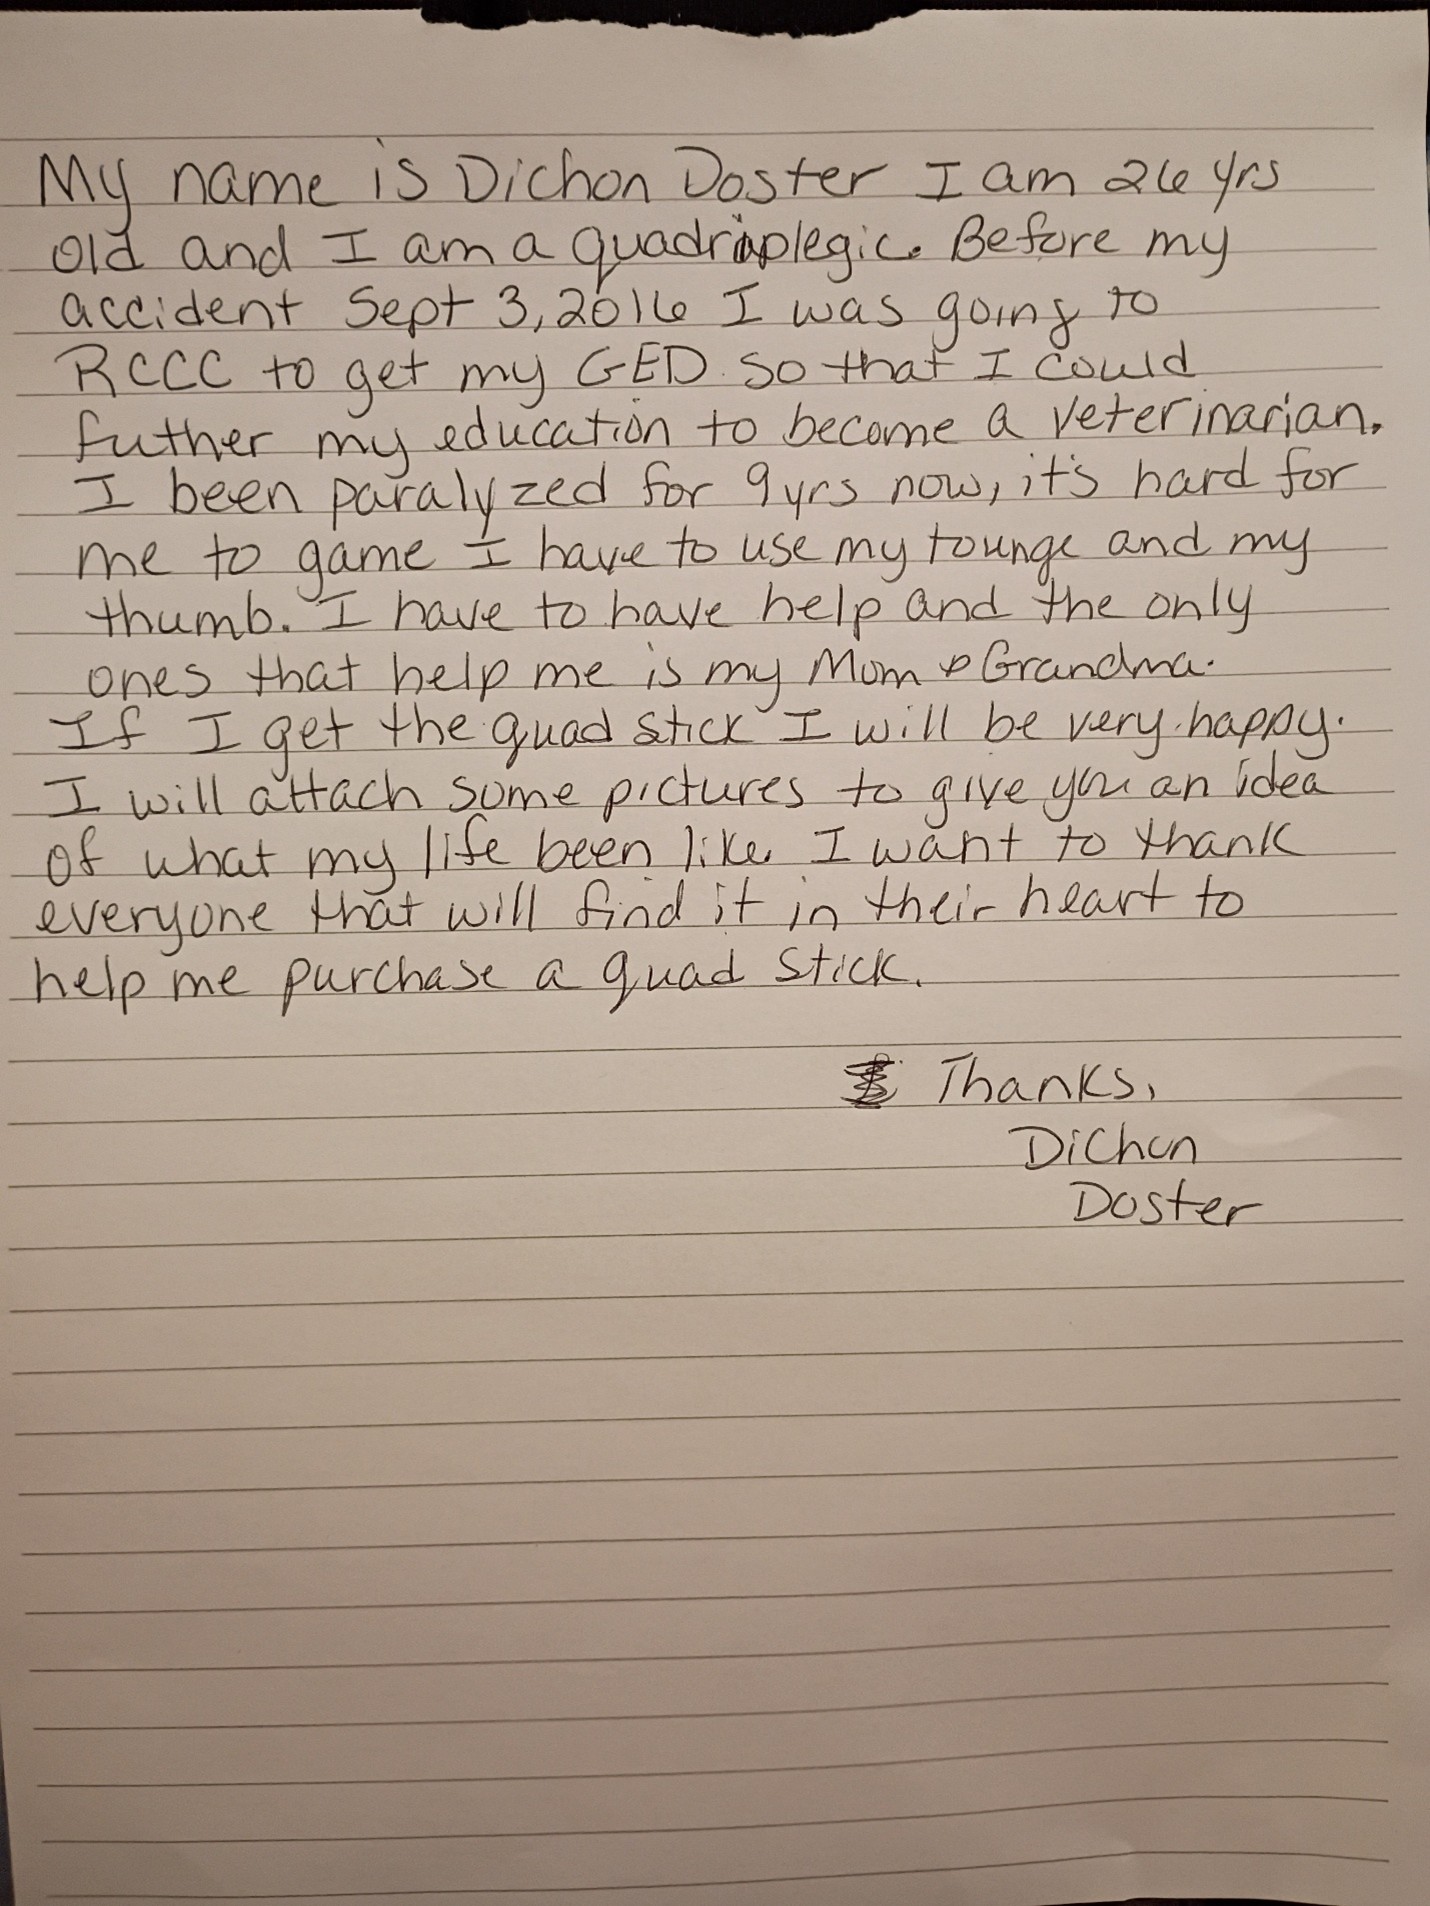 My name is Dichon Doster I am 26 yrs
old and I am a quadriplegic. Before my
accident Sept 3, 2016 I was going to
RCCC to get my GED so that I could
futher my education to become a veterinarian.
I been paralyzed for 9 yrs now, it's hard for
me to game I have to use my tounge and my
thumb. I have to have help and the only
ones that help me is my Mom & Grandma.
If I get the quad stick I will be very happy.
I will attach some pictures to give you an idea
of what my life been like. I want to thank
everyone that will find it in their heart to
help me purchase a quad stick.
Thanks,
Dichon
Doster